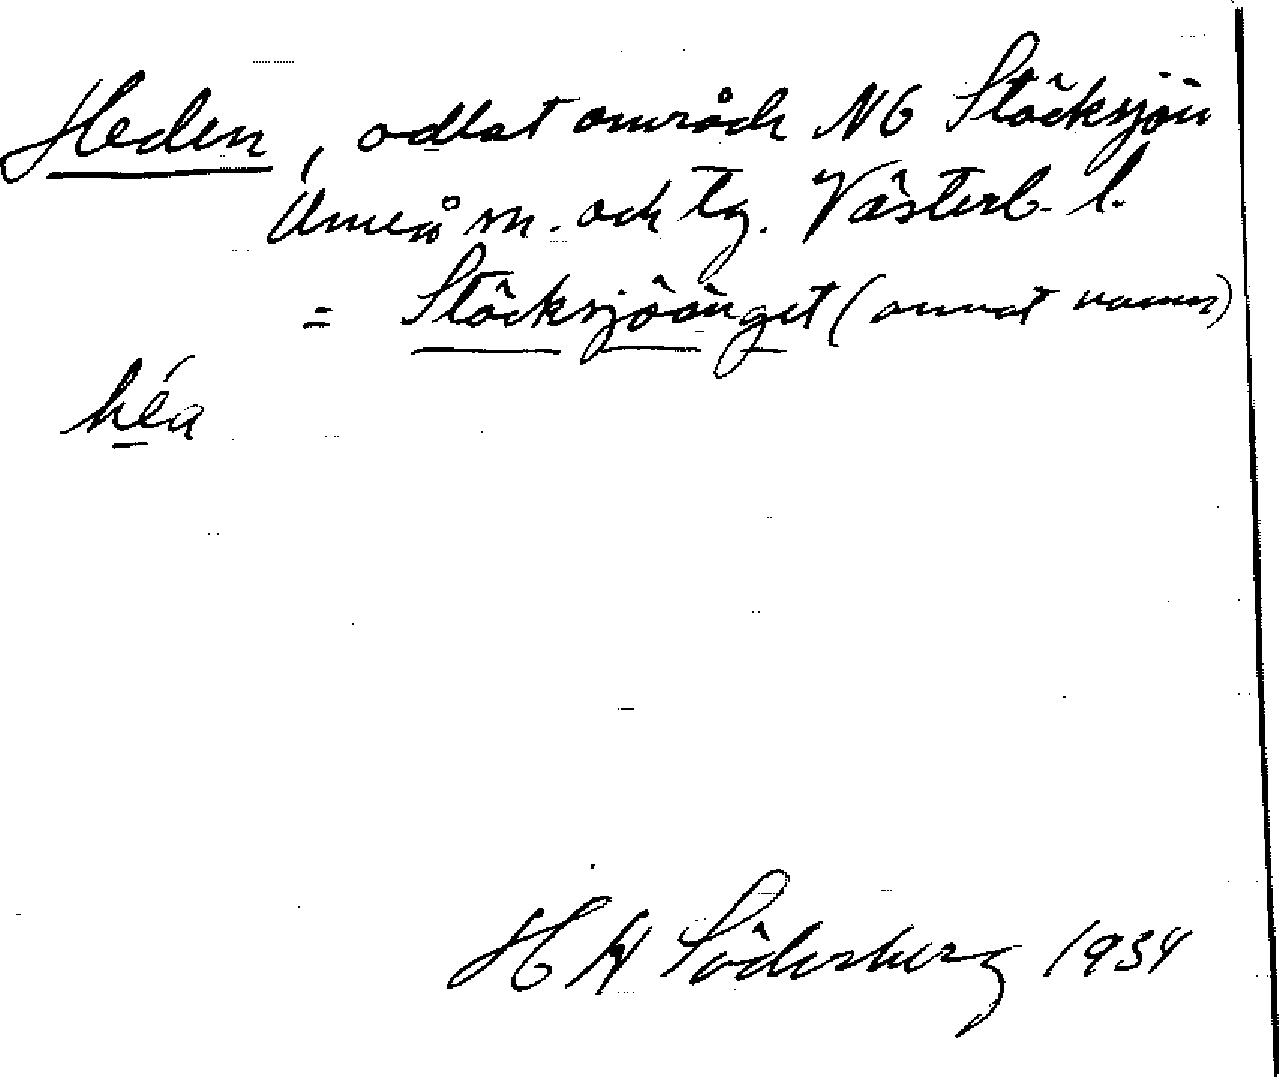 Heden, odlat område NO Stöcksjön
Umeå sn. och tg. Västerb. l.
= Stöcksjöänget (annat namn)
héa
Söderberg 1934